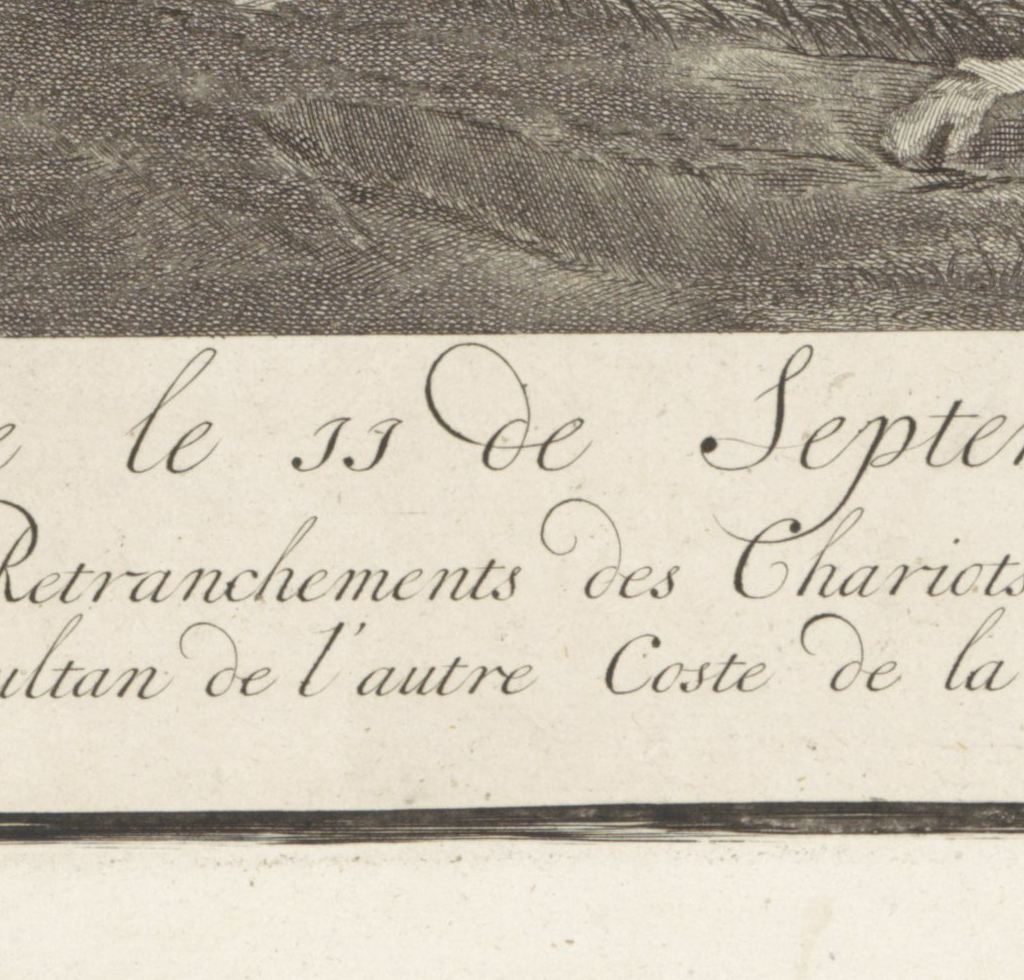 e le 11 de Septe
Retranchements des Chariots
ultan de l'autre Coste de la